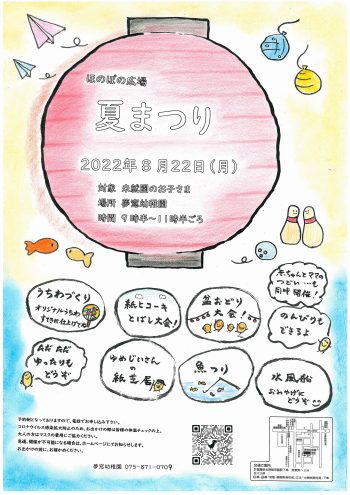 ほのぼの広場
夏まつり
2022年8月22日(月)
対象 未就園のお子さま
場所 夢窓幼稚園
時間 9時半〜11時半ごろ
赤ちゃんとママの
つどい…も
同時開催!
うちわづくり
オリジナルうちわ
すてきに仕上げてね
紙ヒコーキ
とばし大会!
盆おどり
大会!
のんびりも
できるよ
ただただ
ゆったりも
どうぞ
ゆめじいさんの
紙芝居
魚つり
水風船
おみやげに
どうぞ
予約制になっておりますので、電話でお申し込み下さい。
コロナウイルス感染拡大防止のため、お出かけの際は皆様の体温チェックの上、
大人の方はマスクの着用にご協力ください。
急遽、開催が不可能になる場合は、ホームページにてお知らせします。
お出かけの前に、お確かめください。
夢窓幼稚園 075-871-0709